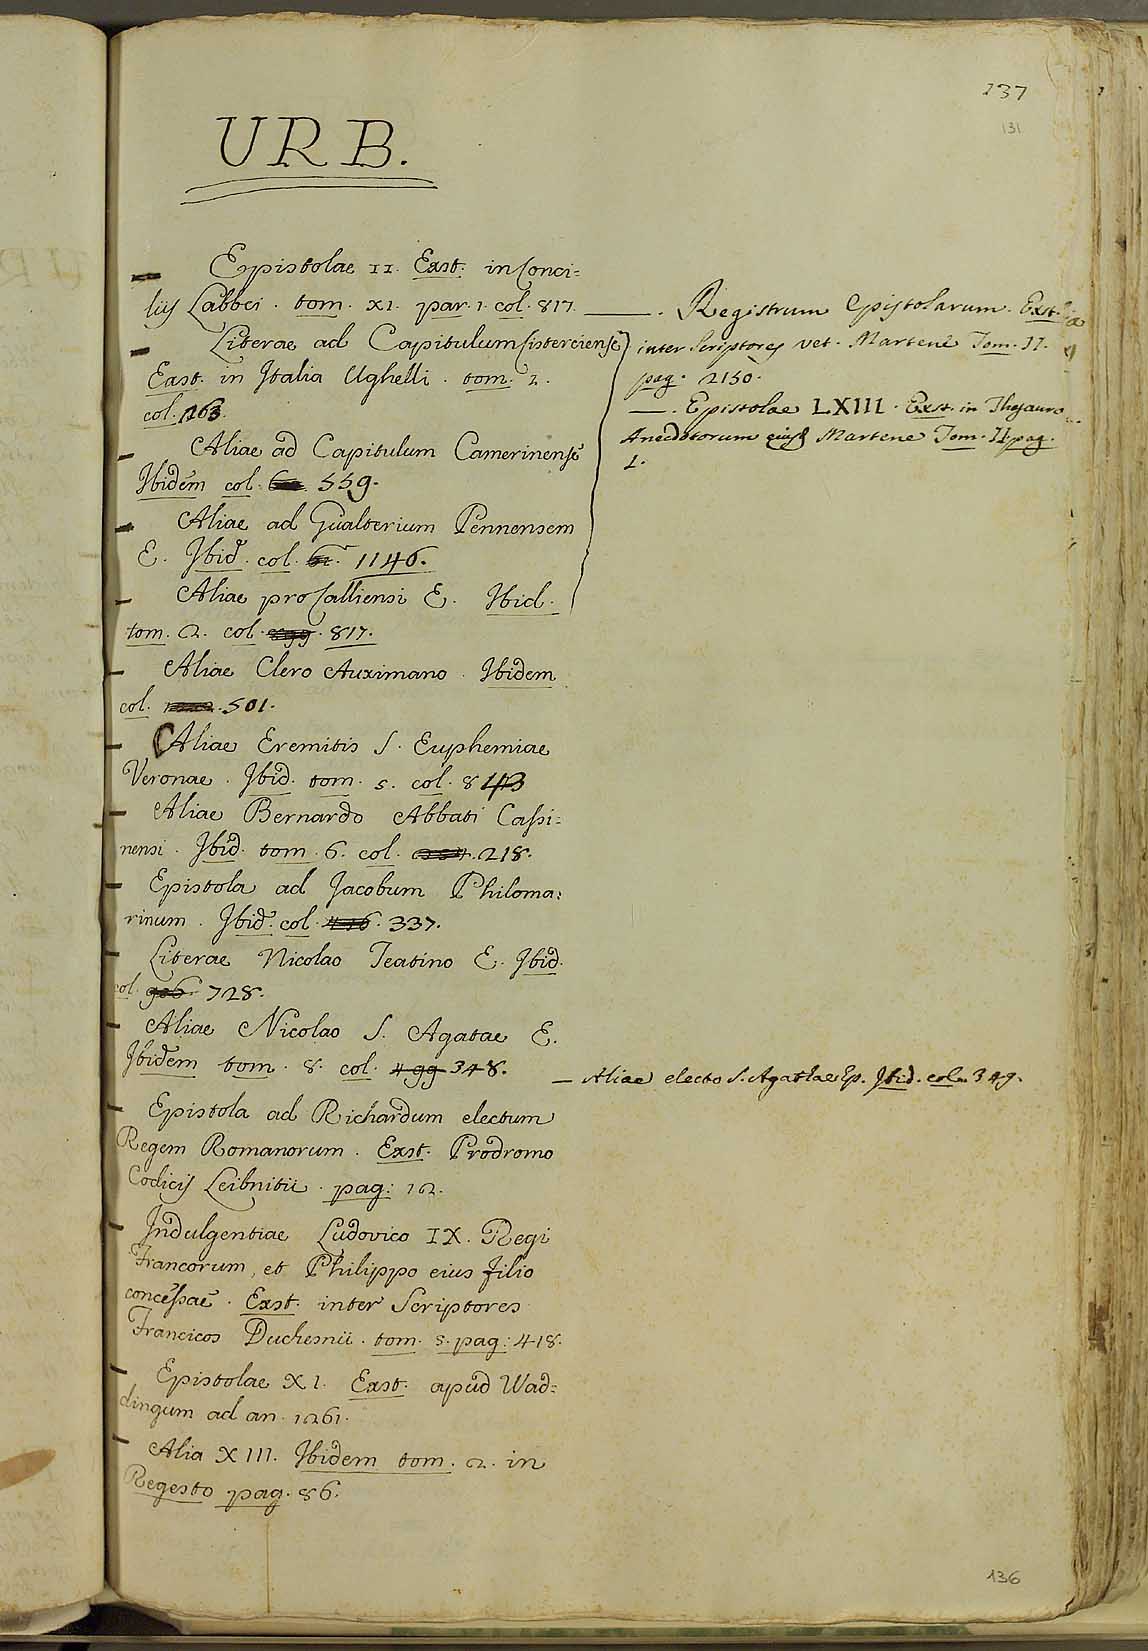 137
131
URB.
Epistolae II. Exst. in Conci=
liis Labbei. tom. XI. par. 1. col. 817.
Literae ad Capitulum Cisterciense
Exst. in Italia Ughelli. tom. 1.
col.
Aliae ad Capitulum Camerinense
Ibidem col. 559.
Aliae ad Gualterium Pennensem
E. Ibid. col. 1146.
Aliae pro Calliensi E. Ibid.
tom. 2. col. 899. 817.
Aliae Clero Auximano. Ibidem
col. 501.
Aliae Eremitis S. Euphemiae
Veronae. Ibid. tom. 5. col. 843
Aliae Bernardo Abbati Cassi=
nensi. Ibid. tom. 6. col. 218.
Epistola ad Jacobum Philoma=
rinum. Ibid. col. 446. 337.
Literae Nicolao Teatino E. Ibid.
col. 906. 728.
Aliae Nicolao S. Agatae E.
Ibidem tom. 8. col. 499 348.
Epistola ad Richardum electum
Regem Romanorum. Exst. Prodromo
Codicis Leibnitii. pag: 12.
Indulgentiae Ludovico IX. Regi
Francorum, et Philippo eius filio
concessae. Exst. inter Scriptores
Francicos Duchesnii. tom. 5. pag: 418.
Epistolae XI. Exst. apud Wad=
dingum ad an. 1261.
Alia XIII. Ibidem tom. 2. in
Regesto pag. 86.
—. Registrum Epistolarum. Exst.
inter Scriptores vet. Martene Tom. II.
pag. 2150.
—. Epistolae LXIII. Exst. in Thesauro
Anecdotorum eiusd. Martene Tom. II pag.
1.
— Aliae electo S. Agathae Ep. Ibid. col. 349.
136